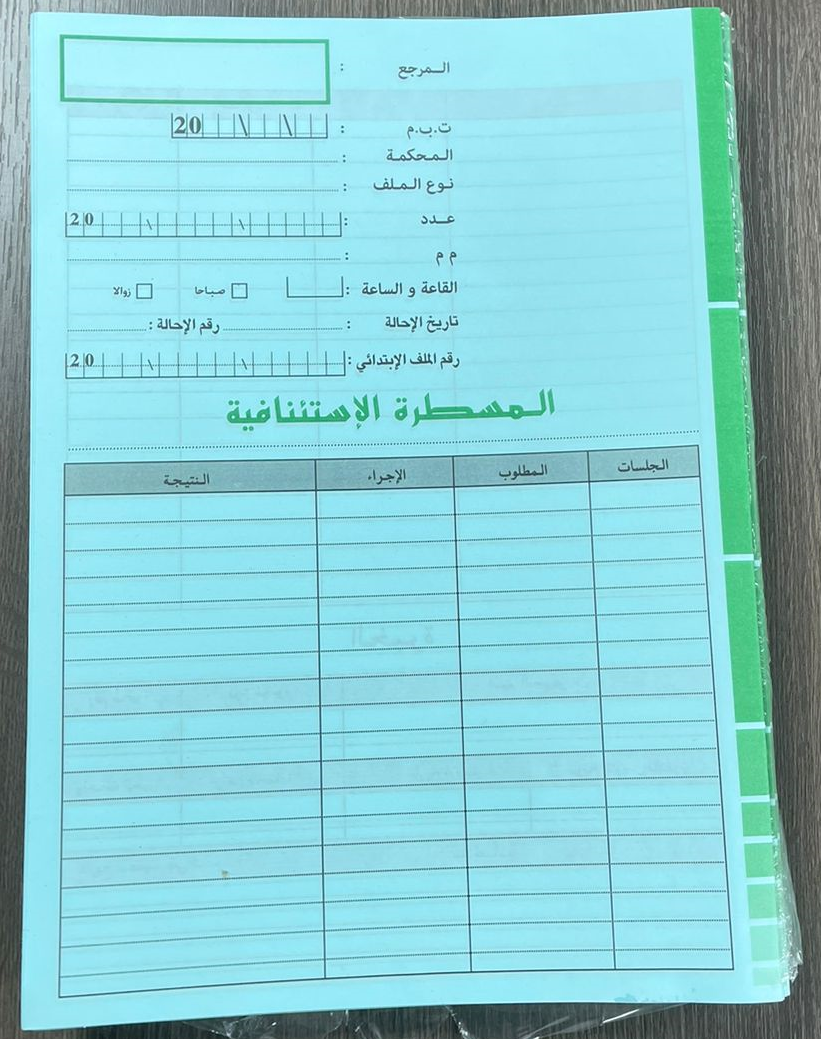 المرجع :
ت.ب.م : 20 \ \
المحكمة :
نوع الملف :
عدد : 20 \ \
م م :
القاعة و الساعة : صباحا زوالا
تاريخ الإحالة : رقم الإحالة :
رقم الملف الإبتدائي : 20 \ \
المسطرة الإستئنافية
الجلسات المطلوب الإجراء النتيجة